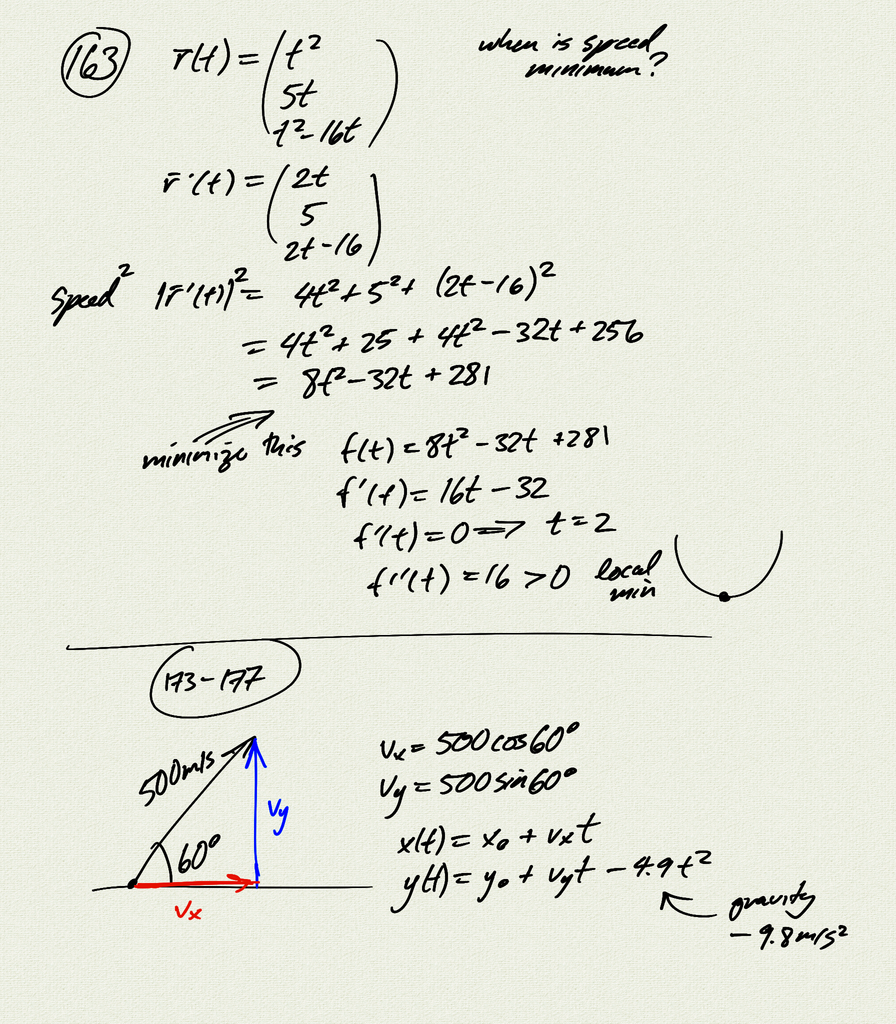 163 r̄(t) = (t²
when is speed
minimum?
5t
t²-16t)
r̄'(t) = (2t
5
2t-16)
speed² |r̄'(t)|² = 4t² + 5² + (2t-16)²
= 4t² + 25 + 4t² - 32t + 256
= 8t² - 32t + 281
minimize this
f(t) = 8t² - 32t + 281
f'(t) = 16t - 32
f'(t) = 0 ⟹ t = 2
f''(t) = 16 > 0 local
min
173-177
500m/s
vy
60°
vx
vx = 500cos60°
vy = 500sin60°
x(t) = x₀ + vxt
y(t) = y₀ + vyt - 4.9t²
gravity
- 9.8m/s²